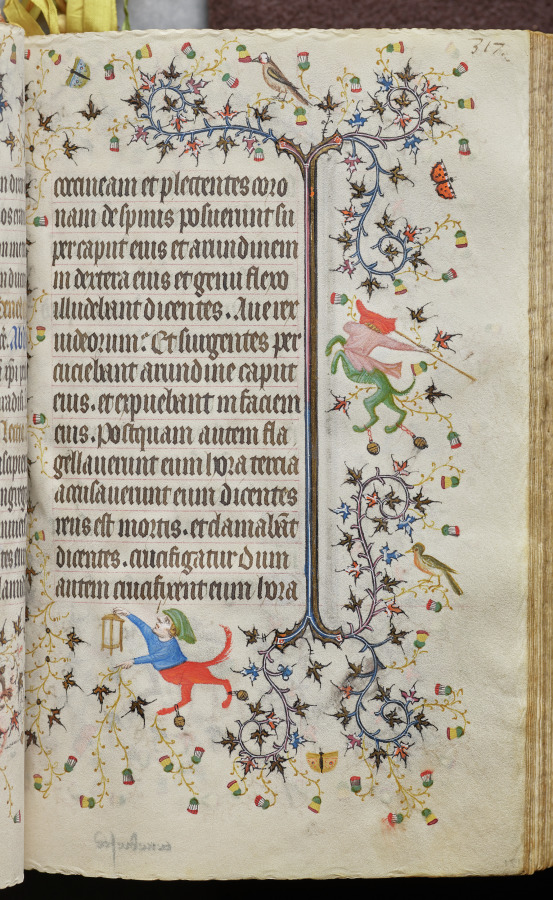 317
coccineam et plectentes coro
nam de spinis posuerunt su
per caput eius et arundinem
in dextera eius et genu flexo
illudebant dicentes. Aue rex
iudeorum: Et surgentes per
cuciebant arundine caput
eius. et expuebant in faciem
eius. Postquam autem fla
gellauerunt eum hora tercia
acusauerunt eum dicentes
reus est mortis. et clamabāt
dicentes. crucifigatur Dum
autem crucifixerent eum hora